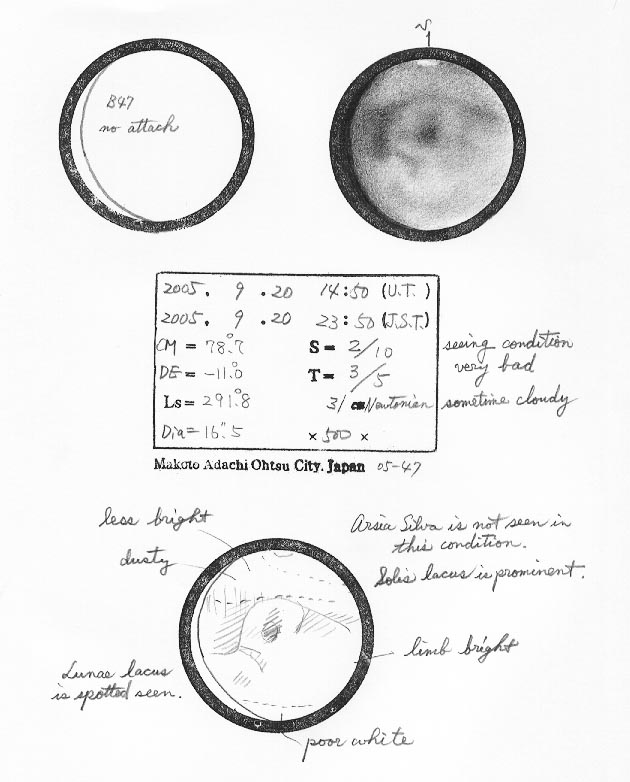 B47
no attach
S
2005. 9 .20 14:50 (U.T.)
2005. 9 .20 23:50 (J.S.T.)
CM = 78°.7 S = 2/10
DE = -11°.0 T = 3/5
Ls = 291°.8 31 cm Newtonian
Dia = 16".5 × 500 ×
seeing condition
very bad
sometime cloudy
Makoto Adachi Ohtsu City. Japan 05-47
less bright
dusty
Arsia Silva is not seen in
this condition.
Solis lacus is prominent.
limb bright
Lunae lacus
is spotted seen.
poor white